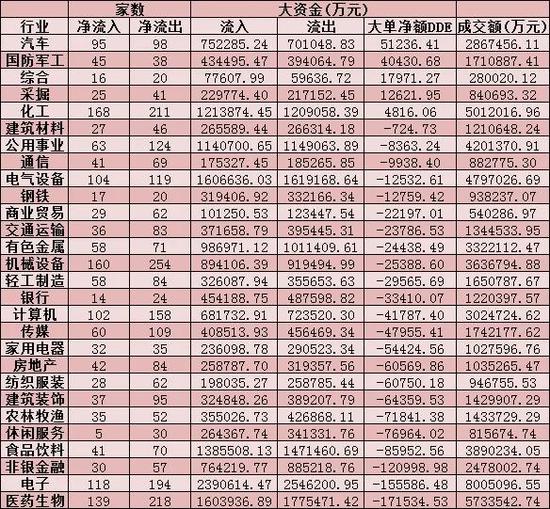 家数 大资金(万元)
行业 净流入 净流出 流入 流出 大单净额DDE 成交额(万元)
汽车 95 98 752285.24 701048.83 51236.41 2867456.11
国防军工 45 38 434495.47 394064.79 40430.68 1710887.41
综合 16 20 77607.99 59636.72 17971.27 280020.12
采掘 25 41 229774.40 217152.45 12621.95 840693.32
化工 168 211 1213874.45 1209058.39 4816.06 5012016.96
建筑材料 27 46 265589.44 266314.18 -724.73 1210648.24
公用事业 63 124 1140700.65 1149063.89 -8363.24 4201370.91
通信 41 69 175327.45 185265.85 -9938.40 882775.30
电气设备 104 119 1606636.03 1619168.64 -12532.61 4797026.69
钢铁 17 20 319406.92 332166.34 -12759.42 938237.07
商业贸易 29 62 101250.53 123447.54 -22197.01 540286.97
交通运输 36 83 371658.79 395445.31 -23786.53 1344533.95
有色金属 58 71 986971.12 1011409.61 -24438.49 3322112.47
机械设备 160 254 894106.39 919494.99 -25388.60 3636794.88
轻工制造 58 84 326087.94 355653.63 -29565.69 1650787.67
银行 14 24 454188.75 487598.82 -33410.07 1220397.57
计算机 102 158 681732.91 723520.30 -41787.40 3024724.62
传媒 60 109 408513.93 456469.34 -47955.41 1742177.62
家用电器 32 35 236098.78 290523.34 -54424.56 1027596.76
房地产 42 84 258787.70 319357.56 -60569.86 1035265.47
纺织服装 28 62 198035.27 258785.44 -60750.18 946755.53
建筑装饰 37 95 324848.26 389207.79 -64359.53 1429907.29
农林牧渔 35 52 355026.73 426868.11 -71841.38 1433729.29
休闲服务 5 30 264367.74 341331.76 -76964.02 815674.74
食品饮料 41 70 1385508.13 1471460.69 -85952.56 3890234.05
非银金融 30 57 764219.77 885218.76 -120998.98 2478002.74
电子 118 194 2390614.47 2546200.95 -155586.48 8005096.55
医药生物 139 218 1603936.89 1775471.42 -171534.53 5733542.74